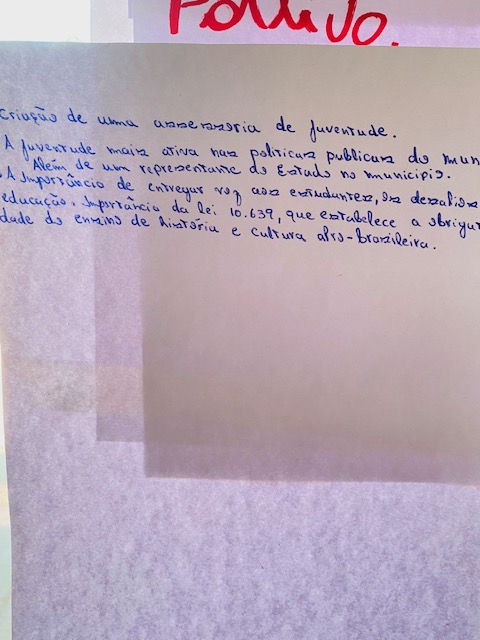 Coletivo.
Criação de uma assessoria de Juventude.
A Juventude mais ativa nas politicas publicas do mun
Além de um representante do Estado no município.
A Importância de entregar voz aos estudantes, os desafios
educação. Importância da lei 10.639, que estabelece a obrigat
dade do ensino de história e cultura afro-brasileira.